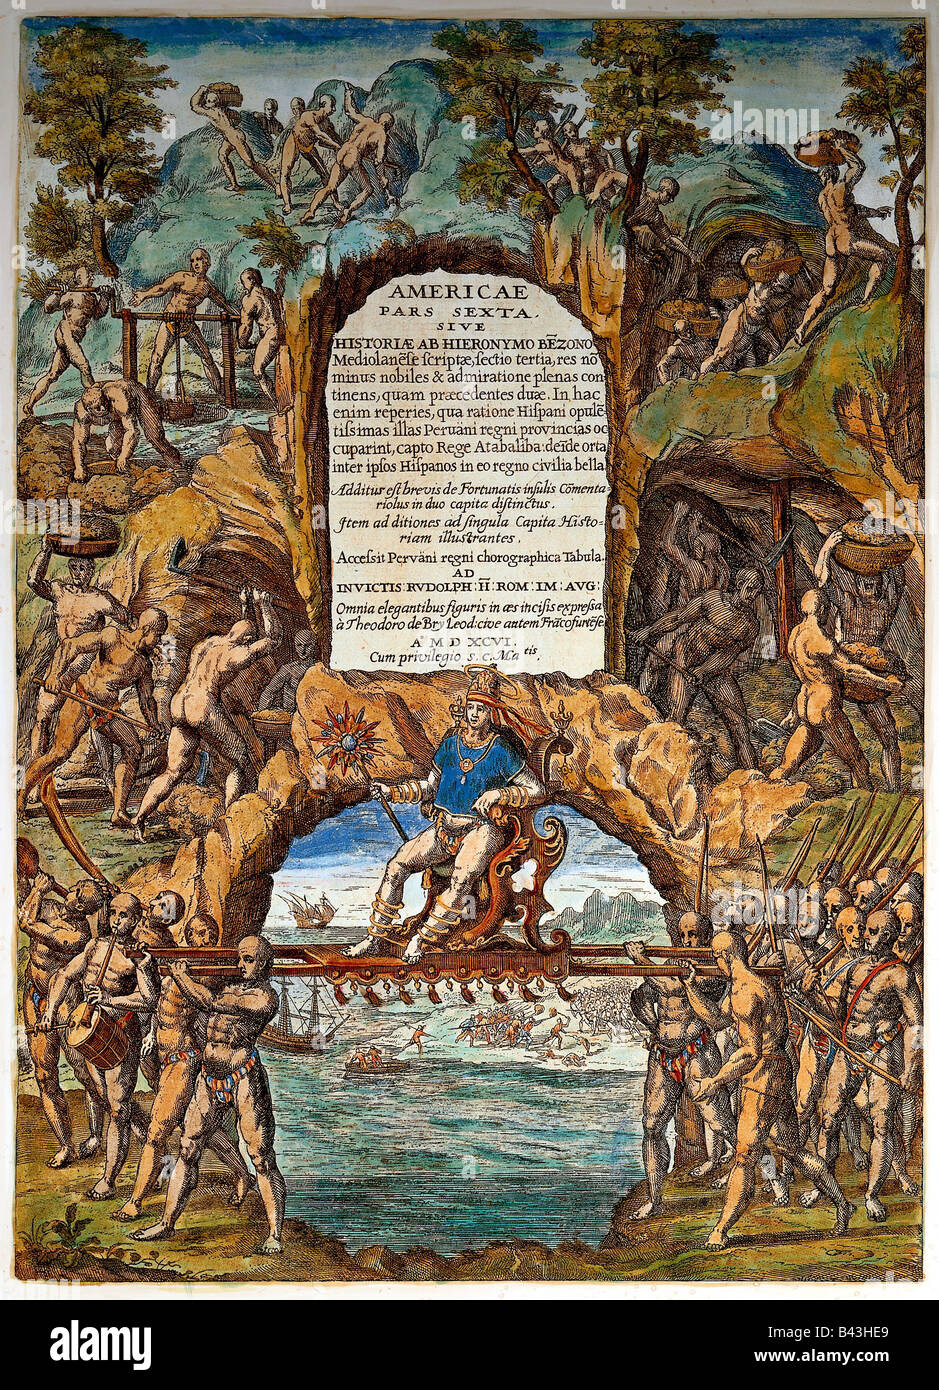 AMERICAE
PARS SEXTA.
SIVE
HISTORIÆ AB HIERONYMO BĒZONO
Mediolanẽse scriptæ, sectio tertia, res nõ
minus nobiles & admiratione plenas con
tinens, quam præcedentes duæ. In hac
enim reperies, qua ratione Hispani opulẽ-
tissimas illas Peruãni regni provincias oc
cuparint, capto Rege Atabaliba: deĩde orta
inter ipsos Hispanos in eo regno civilia bella.
Additus est brevis de Fortunatis insulis Cõmenta
riolus in duo capita distinctus.
Item ad ditiones ad singula Capita Histo-
riam illustrantes.
Accessit Pervãni regni chorographica Tabula.
AD
INVICTIS: RVDOLPH: II: ROM: IM: AVG:
Omnia elegantibus figuris in æs incisis expressa
à Theodoro de Bry Leod: cive autem Frãcofurtẽse
Aº M D XCVI.
Cum privilegio S. C. Matis.
alamy
Image ID: B43HE9
www.alamy.com